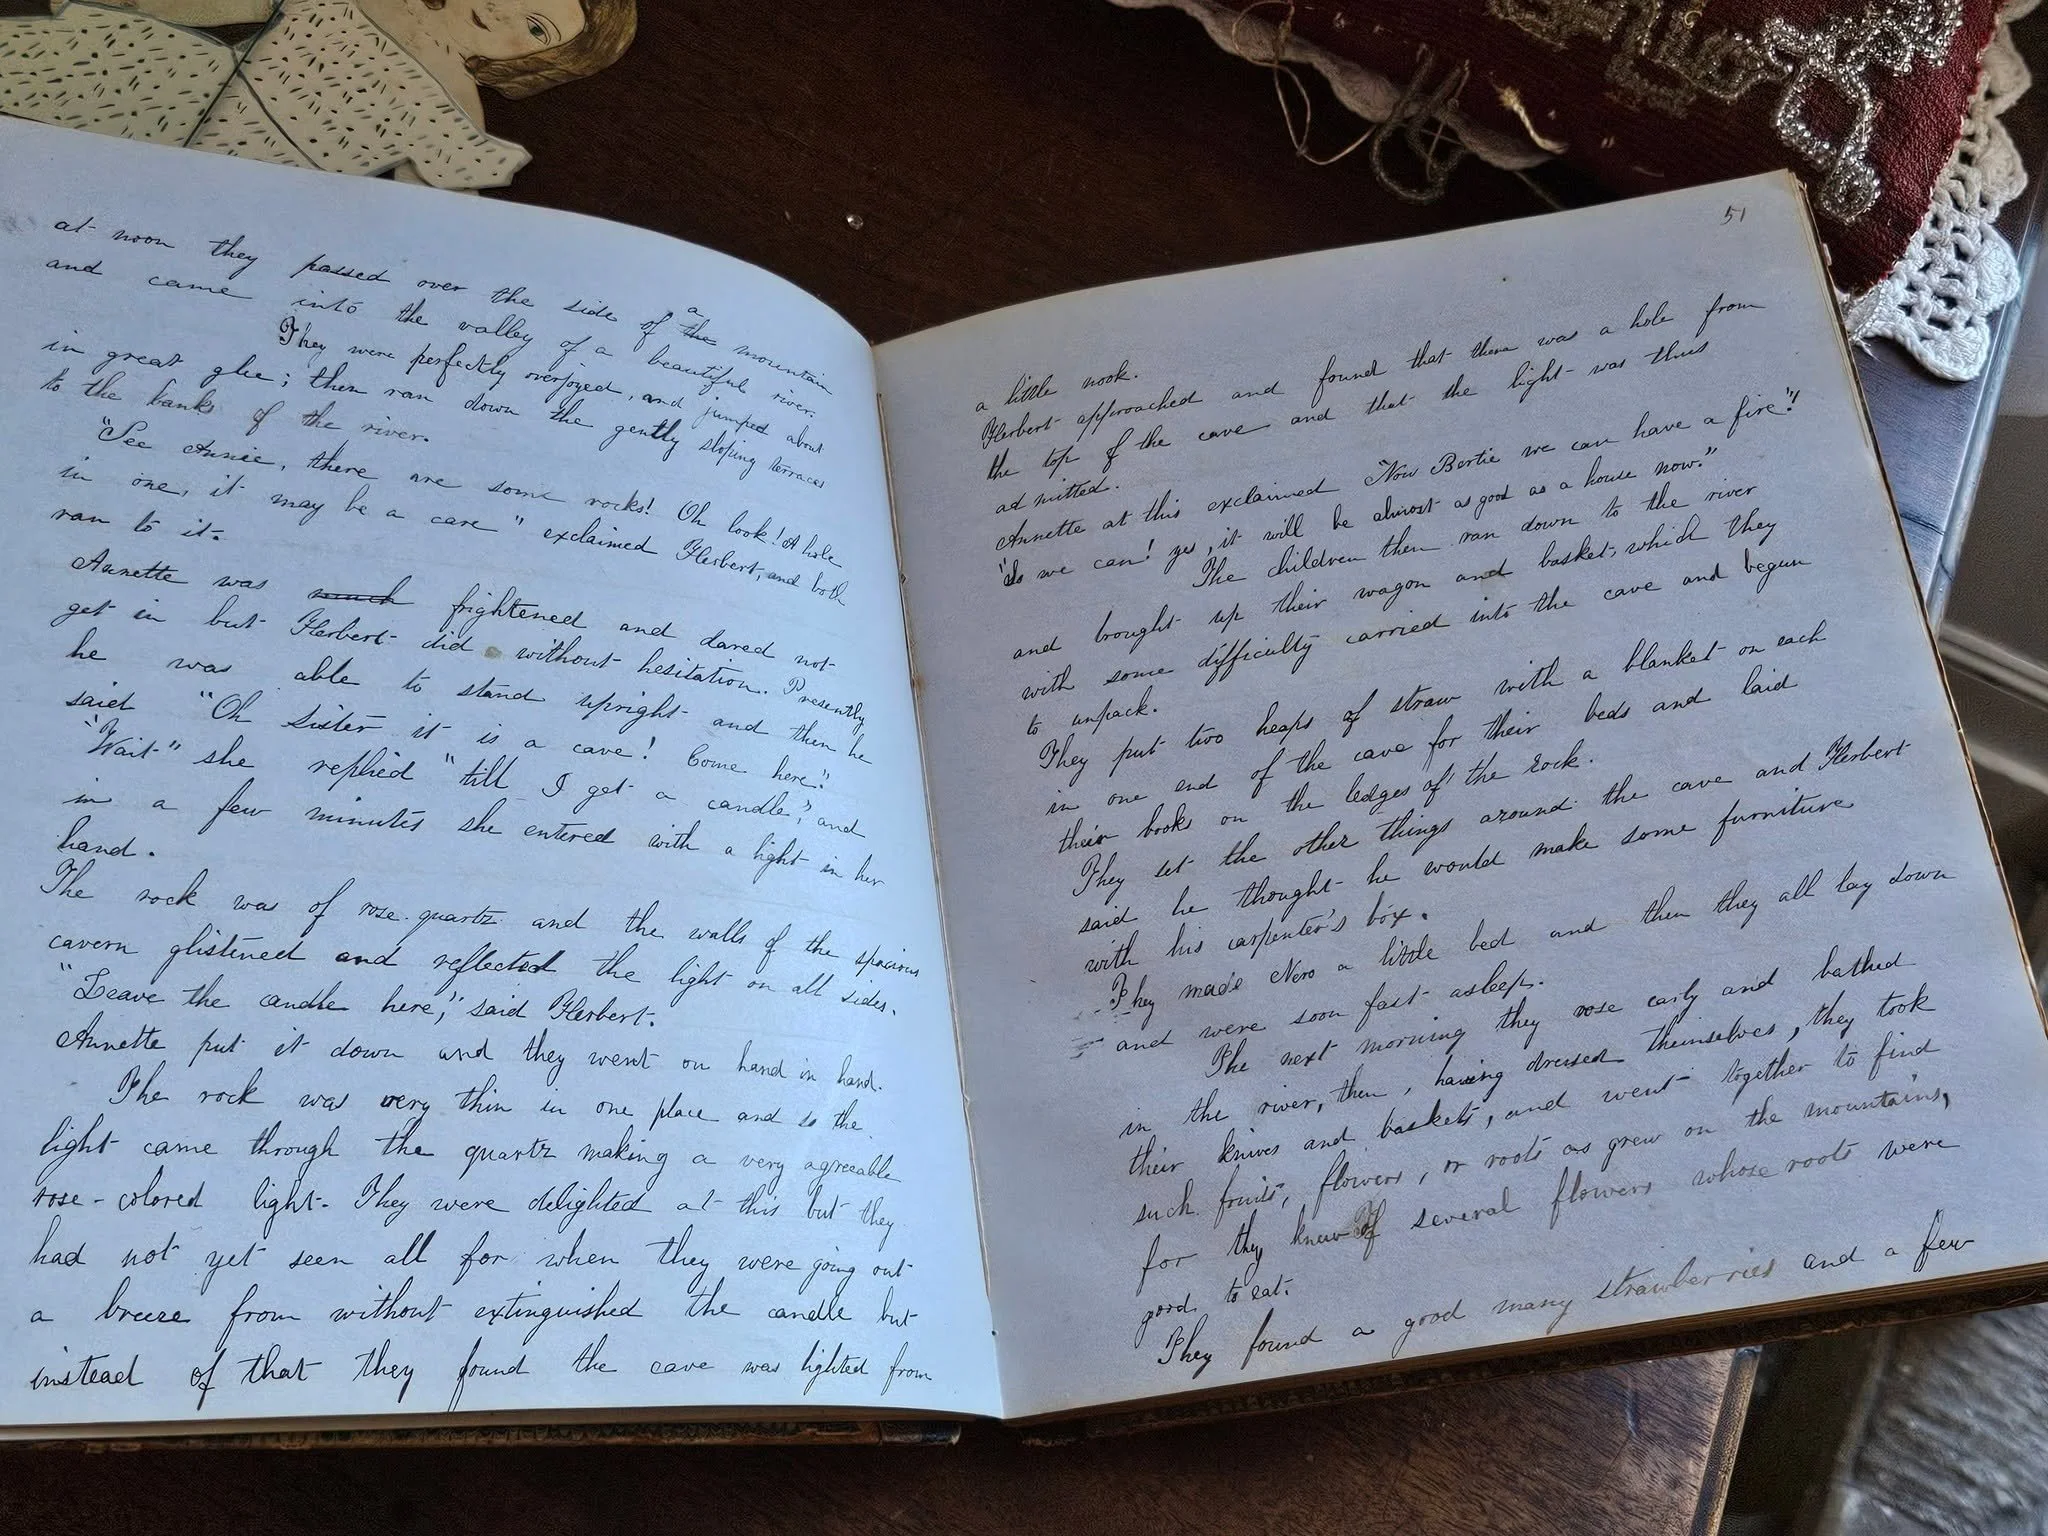 at noon they passed over the side of the a mountain
and came into the valley of a beautiful river.
They were perfectly overjoyed, and jumped about
in great glee; then ran down the gently sloping terraces
to the banks of the river.
"See Annie, there are some rocks! Oh look! A hole
in one, it may be a cave" exclaimed Herbert, and both
ran to it.
Annette was much frightened and dared not
get in but Herbert did without hesitation. Presently
he was able to stand upright and then he
said "Oh Sister it is a cave! Come here!"
"Wait" she replied "till I get a candle," and
in a few minutes she entered with a light in her
hand.
The rock was of rose quartz and the walls of the spacious
cavern glistened and reflected the light on all sides.
"Leave the candle here," said Herbert.
Annette put it down and they went on hand in hand.
The rock was very thin in one place and so the
light came through the quartz making a very agreeable
rose-colored light. They were delighted at this but they
had not yet seen all for when they were going out
a breeze from without extinguished the candle but
instead of that they found the cave was lighted from
51
a little nook.
Herbert approached and found that there was a hole from
the top of the cave and that the light was thus
admitted.
Annette at this exclaimed "Now Bertie we can have a fire"!
"So we can! yes, it will be almost as good as a house now."
The children then ran down to the river
and brought up their wagon and basket, which they
with some difficulty carried into the cave and begun
to unpack.
They put two heaps of straw with a blanket on each
in one end of the cave for their beds and laid
their books on the ledges of the rock.
They set the other things around the cave and Herbert
said he thought he would make some furniture
with his carpenter's box.
They made Nero a little bed and then they all lay down
and were soon fast asleep.
The next morning they rose early and bathed
in the river, then, having dressed themselves, they took
their knives and baskets, and went together to find
such fruits, flowers, or roots as grew on the mountains,
for they knew of several flowers whose roots were
good to eat.
They found a good many strawberries and a few